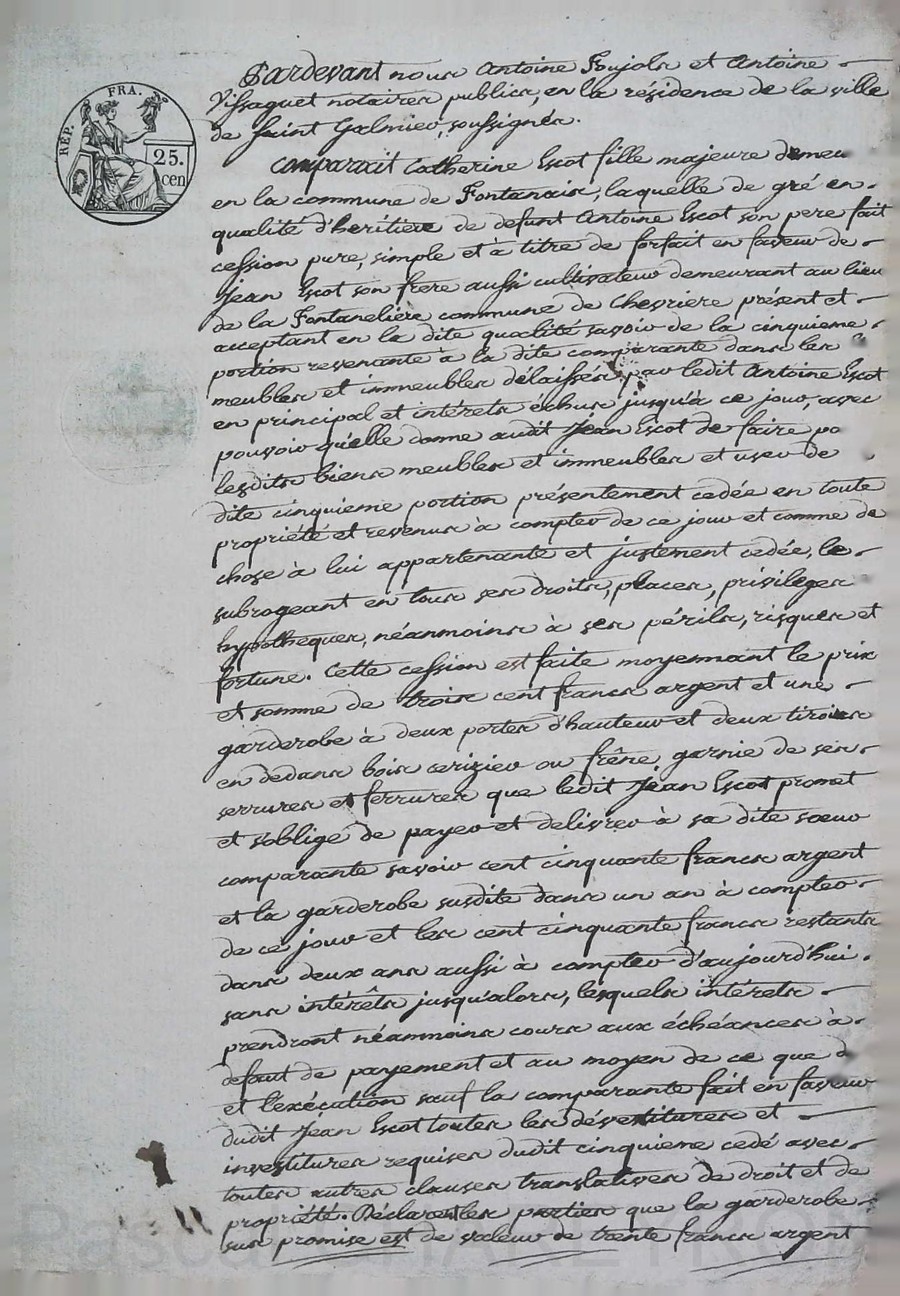 REP. FRA.
25.
cen
Pardevant nous Antoine Soujols et Antoine
Vissaguet notaires publics, en la résidence de la ville
de Saint Galmier, soussignés.
Comparait Catherine Escot fille majeure demeu
en la commune de Fontanais, laquelle de gré en
qualité d'heritiere de defunt Antoine Escot son pere fait
cession pure, simple et à titre de forfait en faveur de
Jean Escot son frere aussi cultivateur demeurant au lieu
de la Fontaneliere commune de Chevriere présent et
acceptant en la dite qualité savoir de la cinquieme
portion revenante à la dite comparante dans les
meubles et immeubles délaissés par ledit Antoine Escot
en principal et intérets échus jusqu'à ce jour, avec
pouvoir qu'elle donne audit Jean Escot de faire
lesdits biens meubles et immeubles et user de
dite cinquieme portion présentement cedée en toute
propriété et revenus à compter de ce jour et comme de
chose à lui appartenante et justement cedée, le
subrogeant en tous ses droits, places, privileges
hypotheques, néanmoins à ses périls, risques et
fortune. Cette cession est faite moyennant le prix
et somme de trois cent francs argent et une
garderobe à deux portes d'hauteur et deux tiroirs
en dedans bois cerizier ou frêne, garnie de ses
serrures et ferrures que ledit Jean Escot promet
et s'oblige de payer et delivrer à sa dite sœur
comparante savoir cent cinquante francs argent
et la garderobe susdite dans un an à compter
de ce jour et les cent cinquante francs restants
dans deux ans aussi à compter d'aujourd'hui
sans intérêts jusqu'alors, lesquels intérets
prendront néanmoins cours aux échéances à
defaut de payement et au moyen de ce que
et l'exécution sauf la comparante fait en faveur
dudit Jean Escot toutes les dévestitures et
investitures requises dudit cinquieme cedé avec
toutes autres clauses translatives de droit et de
propriété. Déclarent les parties que la garderobe
sus promise est de valeur de trente francs argent